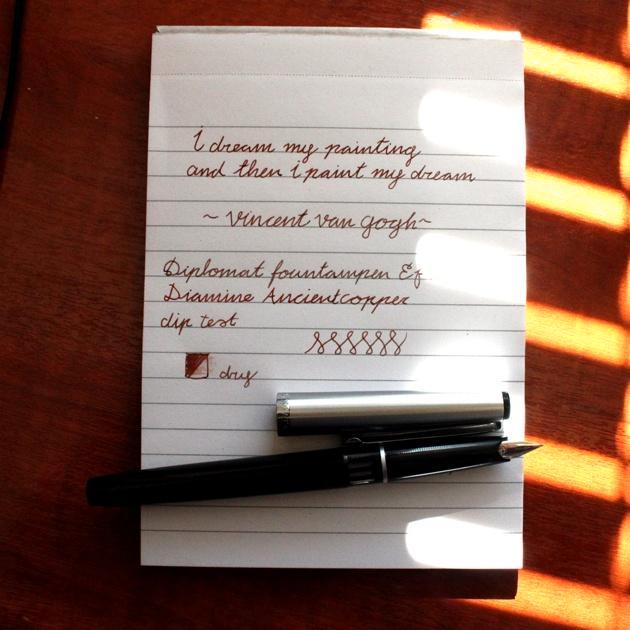 I dream my painting
and then i paint my dream
~ Vincent van gogh ~
Diplomat fountainpen Ef
Diamine Ancientcopper
dip test
dry